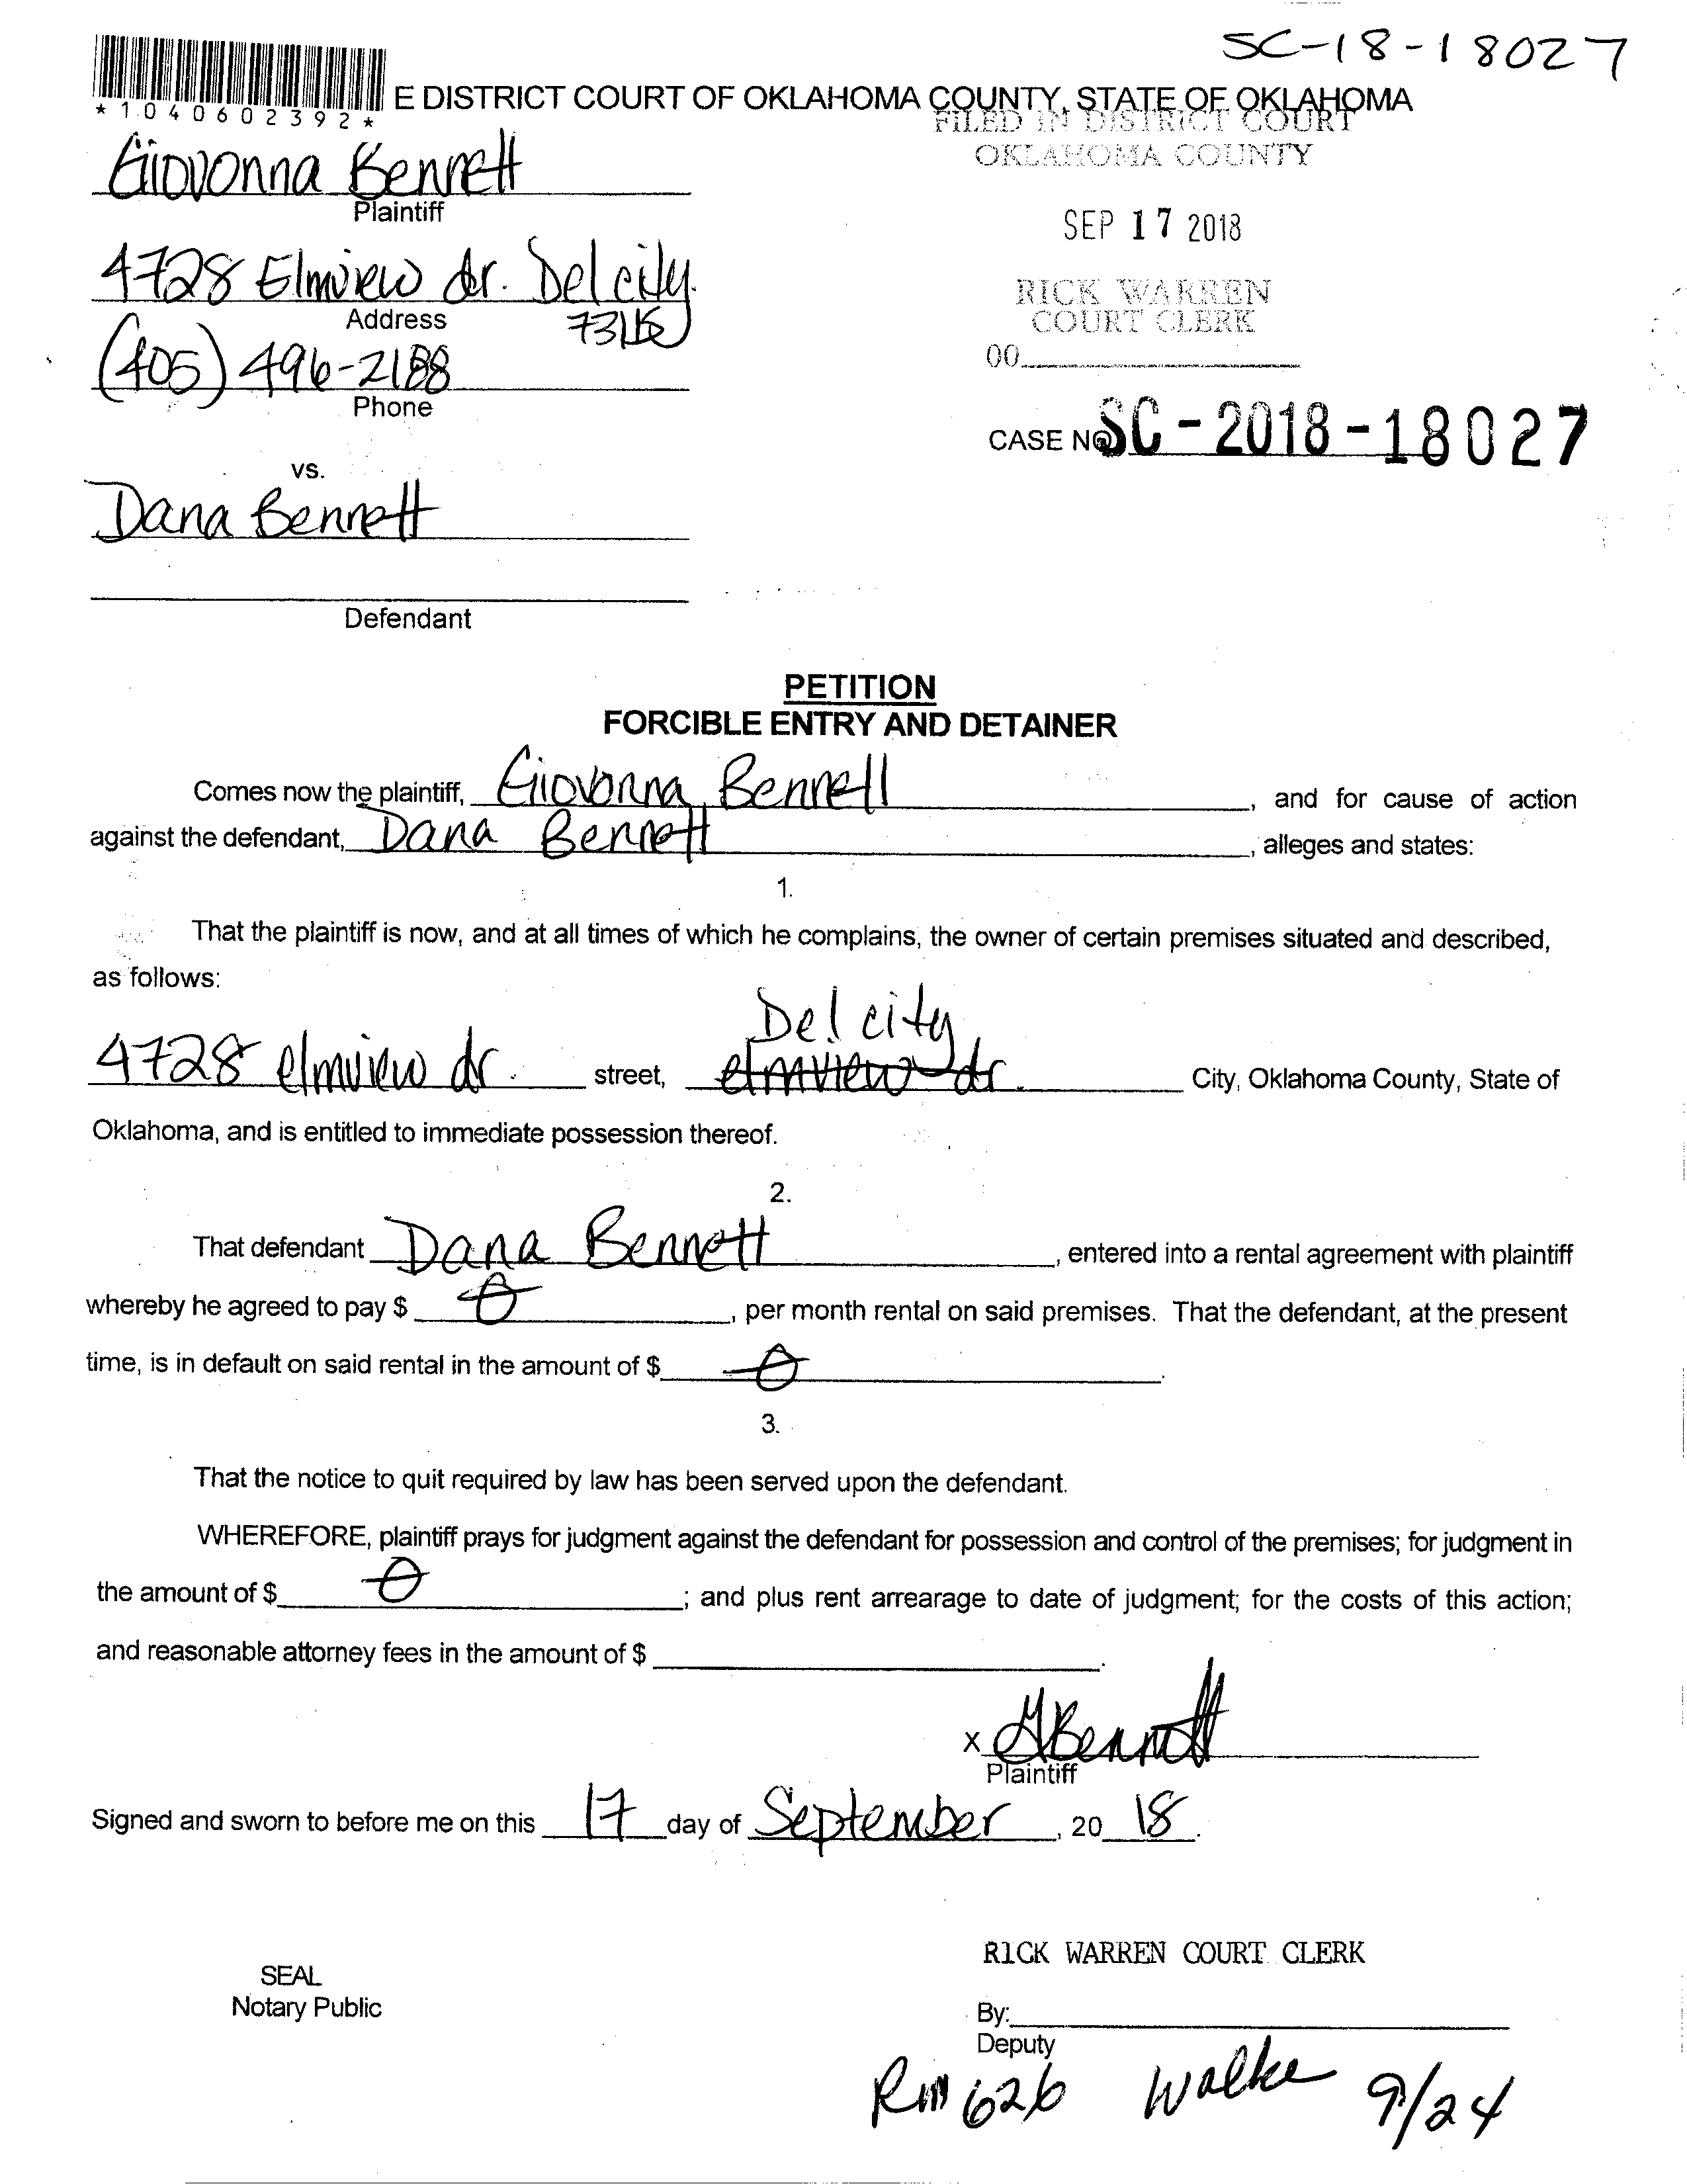 SC-18-18027
*1040602392*
E DISTRICT COURT OF OKLAHOMA COUNTY, STATE OF OKLAHOMA
FILED IN DISTRICT COURT
OKLAHOMA COUNTY
Giovonna Bennett
Plaintiff
SEP 17 2018
4728 Elmview dr. Del city.
Address
73115
RICK WARREN
COURT CLERK
(405) 496-2188
Phone
00
CASE NO. SC-2018-18027
vs.
Dana Bennett
Defendant
PETITION
FORCIBLE ENTRY AND DETAINER
Comes now the plaintiff, Giovonna Bennett, and for cause of action
against the defendant, Dana Bennett, alleges and states:
1.
That the plaintiff is now, and at all times of which he complains, the owner of certain premises situated and described,
as follows:
Del city
4728 elmview dr. street, elmview dr. City, Oklahoma County, State of
Oklahoma, and is entitled to immediate possession thereof.
2.
That defendant Dana Bennett, entered into a rental agreement with plaintiff
whereby he agreed to pay $ 0, per month rental on said premises. That the defendant, at the present
time, is in default on said rental in the amount of $ 0.
3.
That the notice to quit required by law has been served upon the defendant.
WHEREFORE, plaintiff prays for judgment against the defendant for possession and control of the premises; for judgment in
the amount of $ 0; and plus rent arrearage to date of judgment; for the costs of this action;
and reasonable attorney fees in the amount of $ .
x GBennett
Plaintiff
Signed and sworn to before me on this 17 day of September, 20 18.
RICK WARREN COURT CLERK
SEAL
Notary Public
By:
Deputy
Rm 626 Walke 9/24